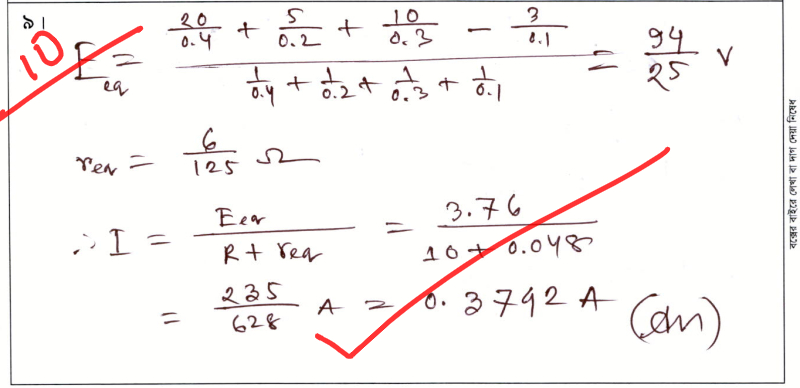 ৯।
10
E_eq = (20/0.4 + 5/0.2 + 10/0.3 - 3/0.1) / (1/0.4 + 1/0.2 + 1/0.3 + 1/0.1) = 94/25 V
r_eq = 6/125 Ω
∴ I = E_eq / (R + r_eq) = 3.76 / (10 + 0.048)
= 235/628 A = 0.3792 A (Ans)
বক্সের বাইরে লেখা বা দাগ দেয়া নিষেধ